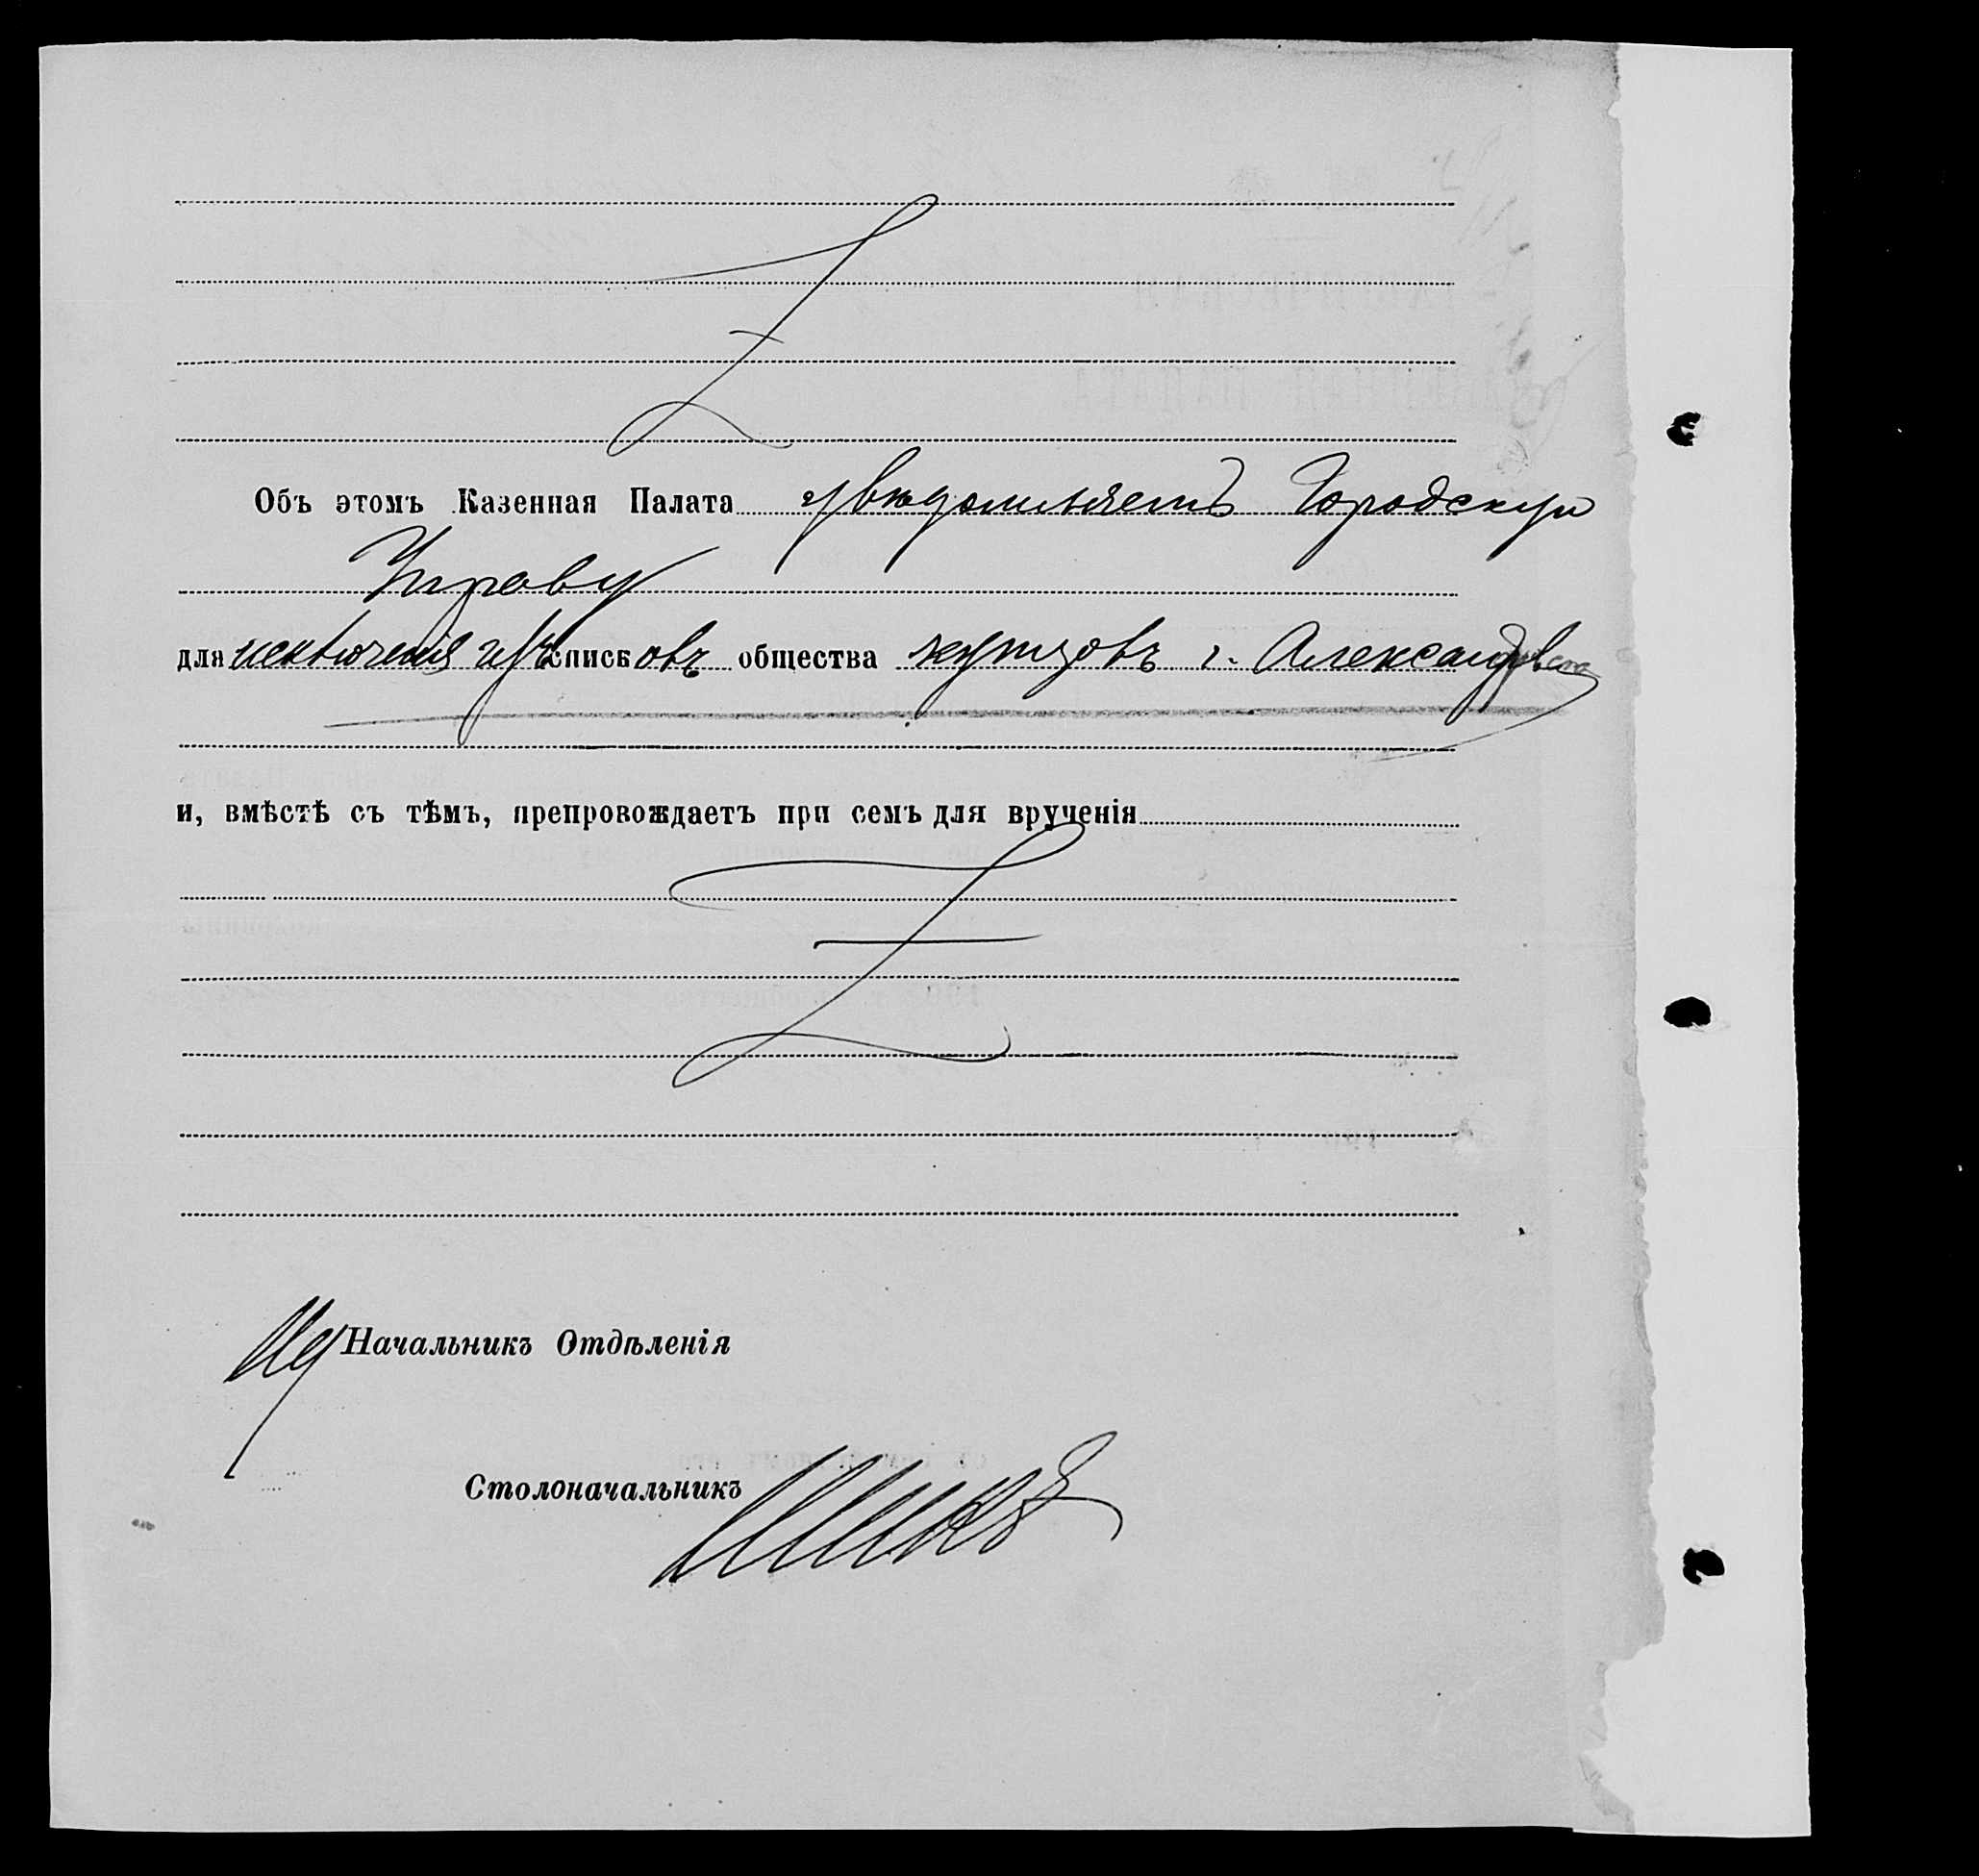 Объ этомъ Казенная Палата увѣдомляетъ Городскую
Управу
для исключенія изъ списковъ общества купцовъ г. Александровска
и, вмѣстѣ съ тѣмъ, препровождаетъ при семъ для врученія
Начальникъ Отдѣленія
Столоначальникъ